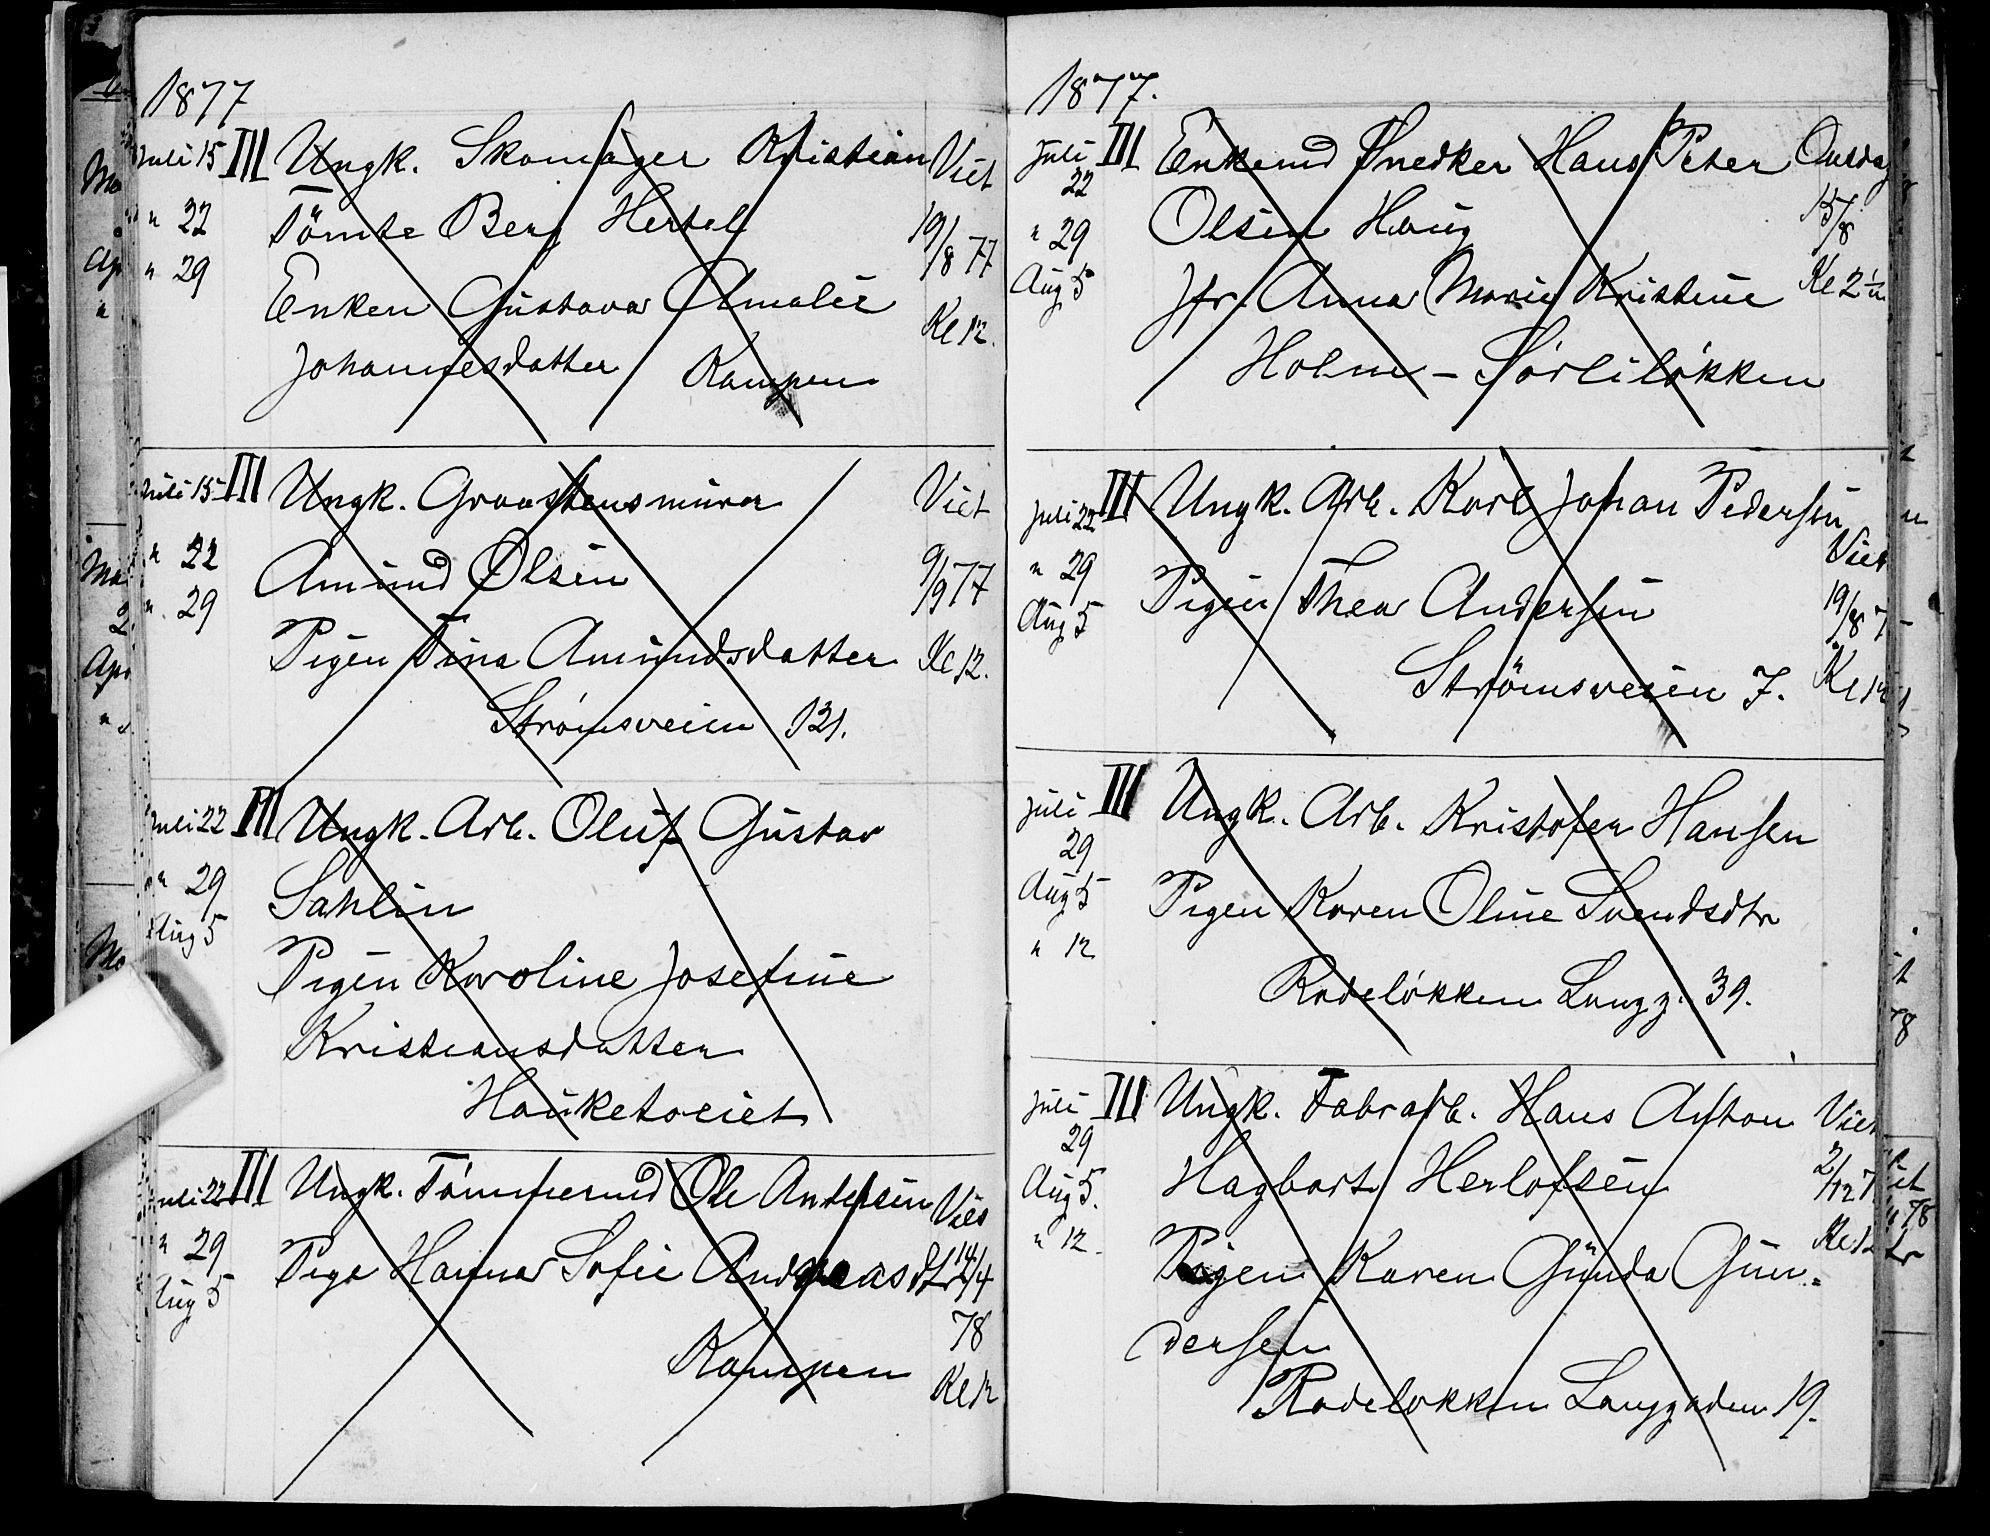 1877
Juli 15 III Ungk. Skomager Kristian Viet
" 22 Tömte Berg Hertel 19/8 77
" 29 Enken Gustava Amalie Kl 12.
Johannesdatter Kampen
Juli 15 III Ungk. Graastensmurer Viet
" 22 Amund Olsen 9/9 77
" 29 Pigen Tina Amundsdatter Kl 12.
Strømsveien 121.
Juli 22 III Ungk. Arb. Oluf Gustav
" 29 Sahlin
Aug 5 Pigen Karoline Josefine
Kristiansdatter
Hauketoeiet
Juli 22 III Ungk. Tømmermd Ole Andersen Vies
" 29 Piga Hanna Sofie Andreasdtr 14/4
Aug 5 78
Kampen Kl 12
1877.
Juli III Enkemd Snedker Hans Peter Onsdag
22 Olsen Haug 15/8
" 29 Jfr. Anna Marie Kristine Kl 2 1/2
Aug 5 Holm - Sørliløkken
Juli 22 III Ungk. Arb. Karl Johan Pedersen
" 29 Pigen Thea Andersen Viet
Aug 5 19/8 7
Strömsveien 7. Kl 12
Juli III Ungk. Arb. Kristofer Hansen
29
Aug 5 Pigen Karen Oline Svendsdtr
" 12
Rodeløkken Langg. 39.
Juli III Ungk. Fabrarb. Hans Anton Viet
29
Aug 5. Hagbart Herlofsen 2/12 7
" 12. Pigen Karen Gunda Gun- Kl 12
dersen
Rodeløkken Langgaden 19.